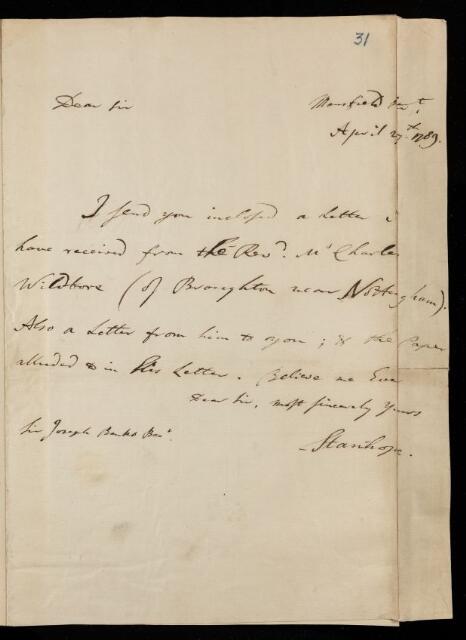 31
Dear Sir
Mansfield Str.t
April 27th. 1789.
I send you inclosed a Letter I
have received from the Revd. Mr Charles
Wildbore (of Broughton near Nottingham).
Also a Letter from him to you; & the Paper
alluded to in his Letter. Believe me Ever
Dear Sir, most sincerely Yours
Sir Joseph Banks Bart.
Stanhope.